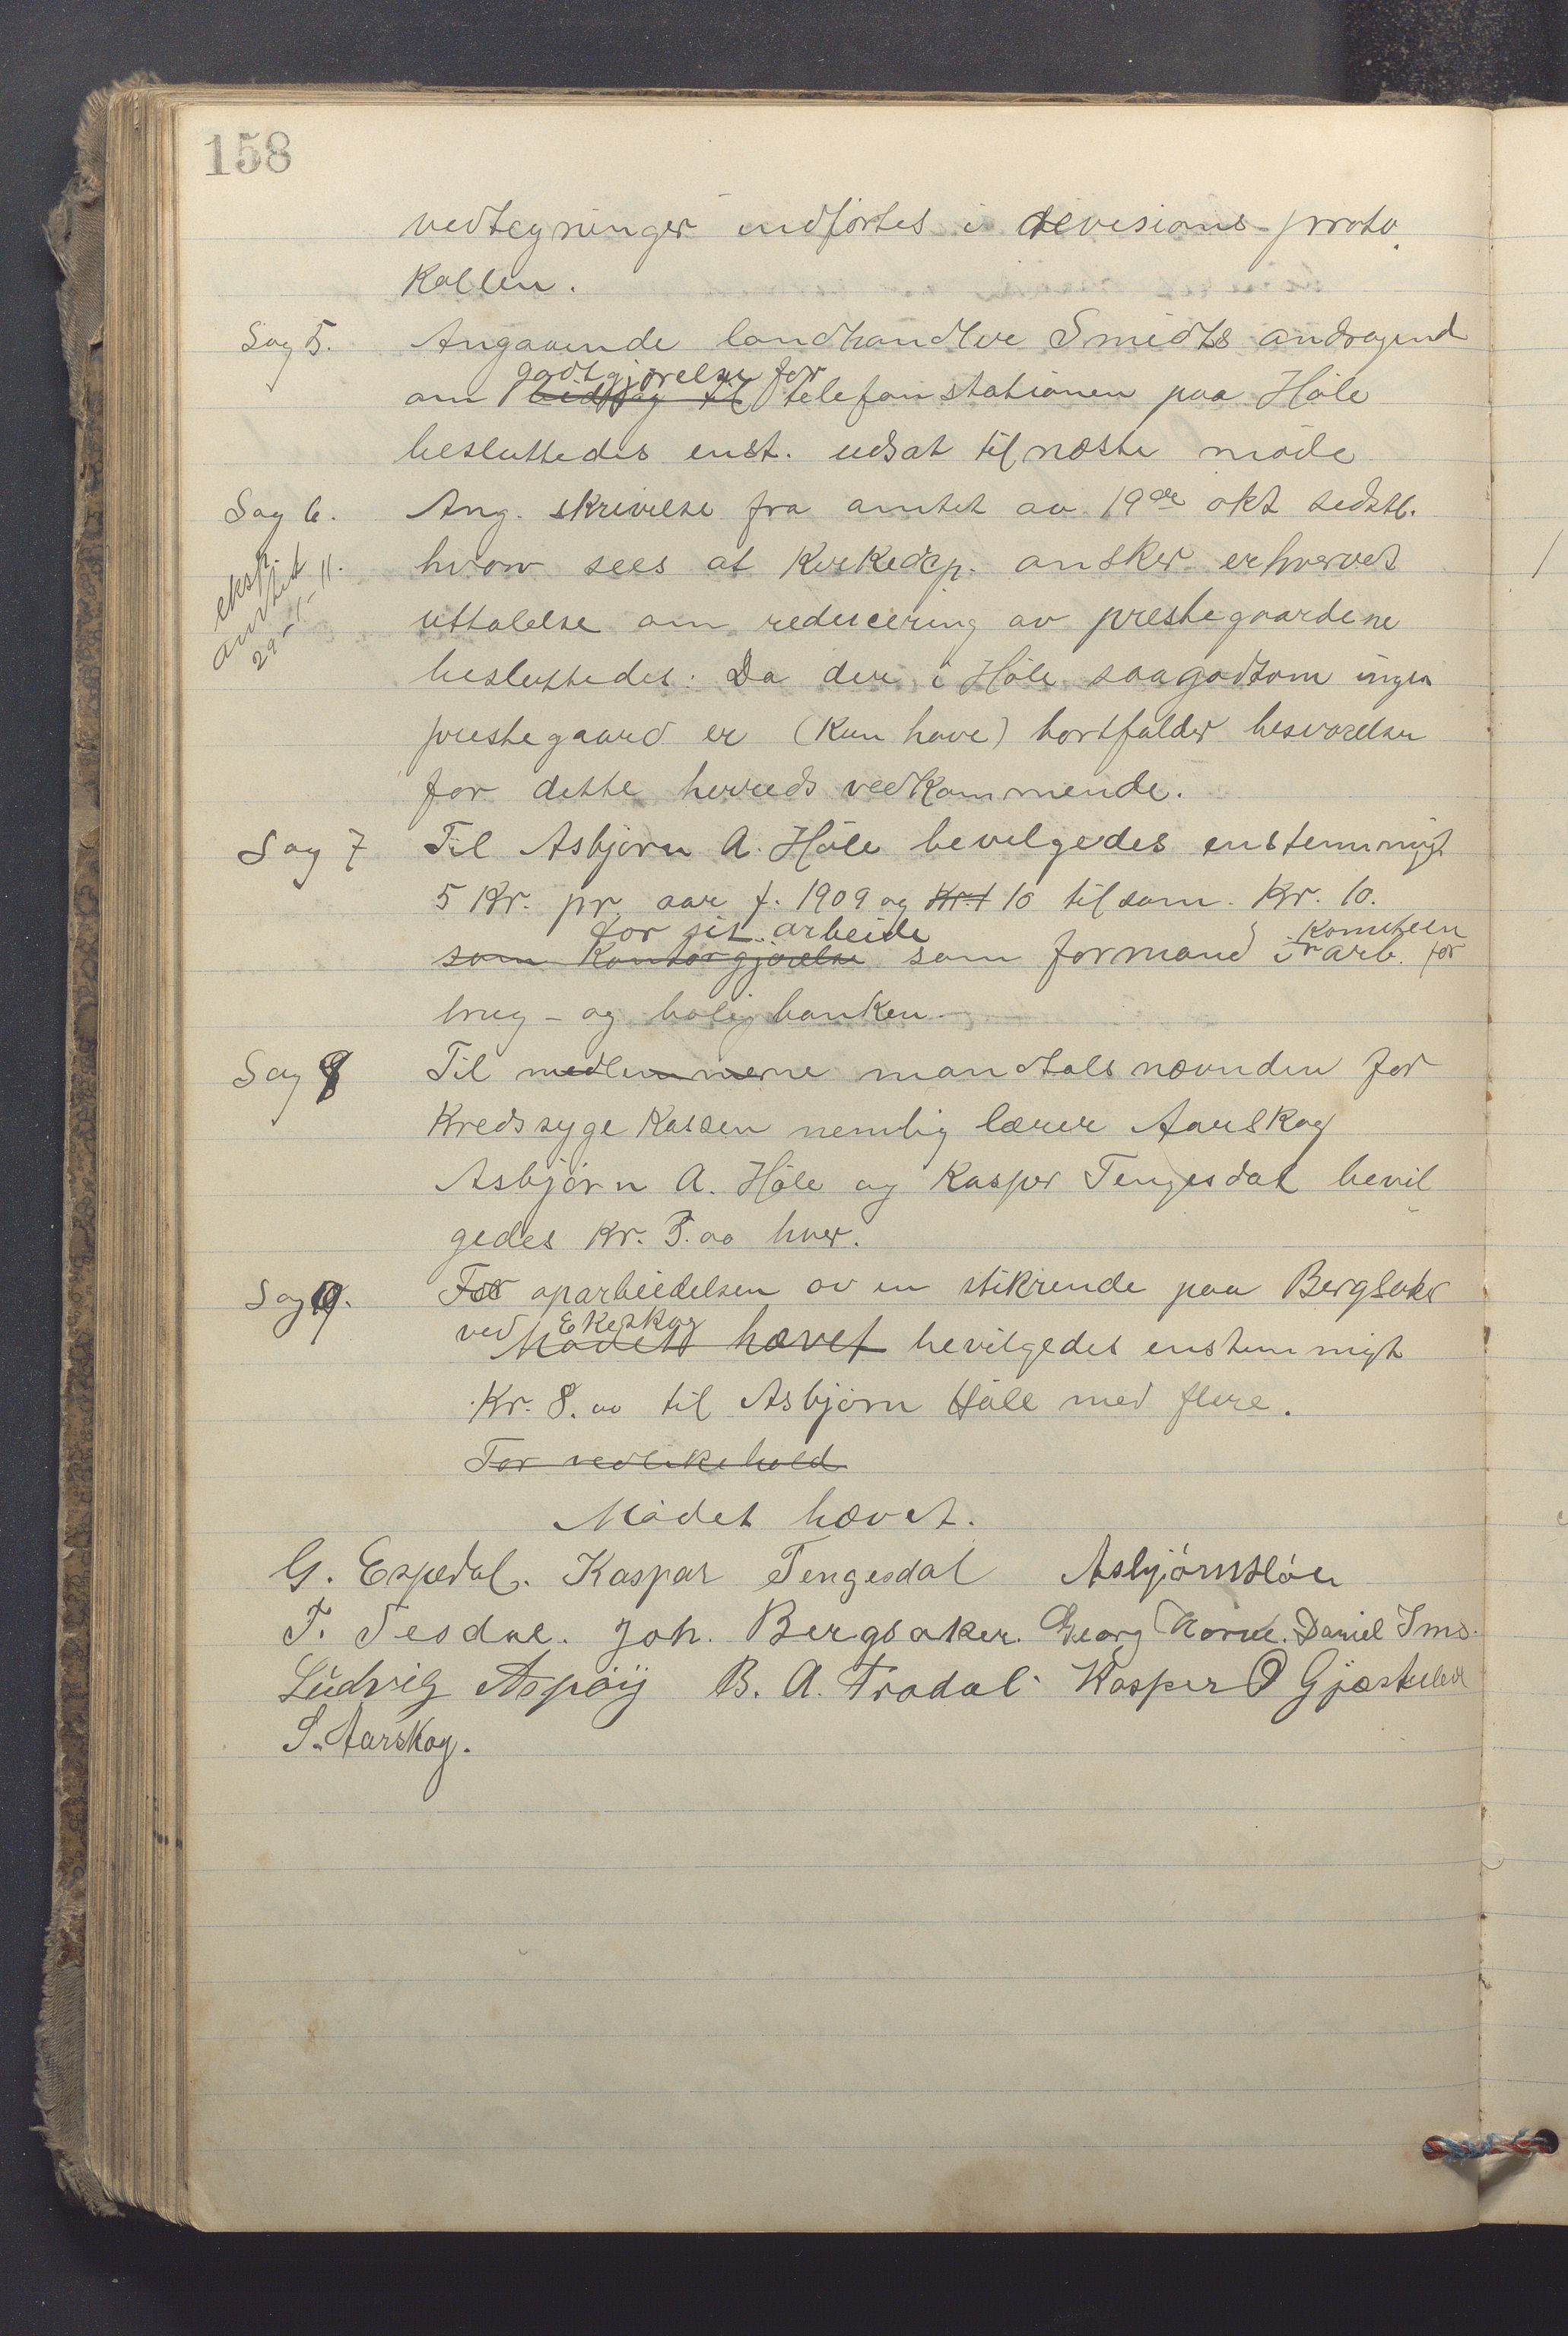 158
vedtegninger indførtes i devisions-proto
kollen.
Sag 5. Angaaende landhandler Smidts andragend
godtgjørelse for
om bidrag til telefonstationen paa Høle
besluttedes enst. udsat til næste møde
Sag 6. Ang. skrivelse fra amtet av 19de okt sidstl.
hvorav sees at Kirkedep. ønsker erhvervet
eksp.
amtet
29-1-11.
uttalelse om reducering av prestegaardene
besluttedes: Da der i Høle saagodtsom ingen
prestegaard er (kun have) bortfalder besvarelsen
for dette herreds vedkommende.
Sag 7 Til Asbjørn A. Høle bevilgedes enstemmigt
5 Kr. pr. aar f. 1909 og Kr. 1 10 tilsam. Kr. 10.
for sit arbeide komiteen
som Kontorgjørelse som formand i arb. for
brug- og boligbanken.
Sag 8 Til medlemmerne mandtalsnævnden for
Kredssygekassen nemlig lærer Aarskog
Asbjørn A. Høle og Kasper Tengesdal bevil
gedes Kr. 5.00 hver.
Sag 9. For oparbeidelsen av en stikrende paa Bergsaker
ved Ekeskog
Mødet hævet bevilgedes enstemmigt
Kr. 8.00 til Asbjørn Høle med flere.
For vedlikehold
Mødet hævet.
G. Espedal. Kaspar Tengesdal Asbjørn Høle
T. Tesdal. Joh. Bergsaker. Georg Daniel Ims.
Ludvig Aspøy B. A. Frødal. Kasper O Gjesteland
S. Aarskog.